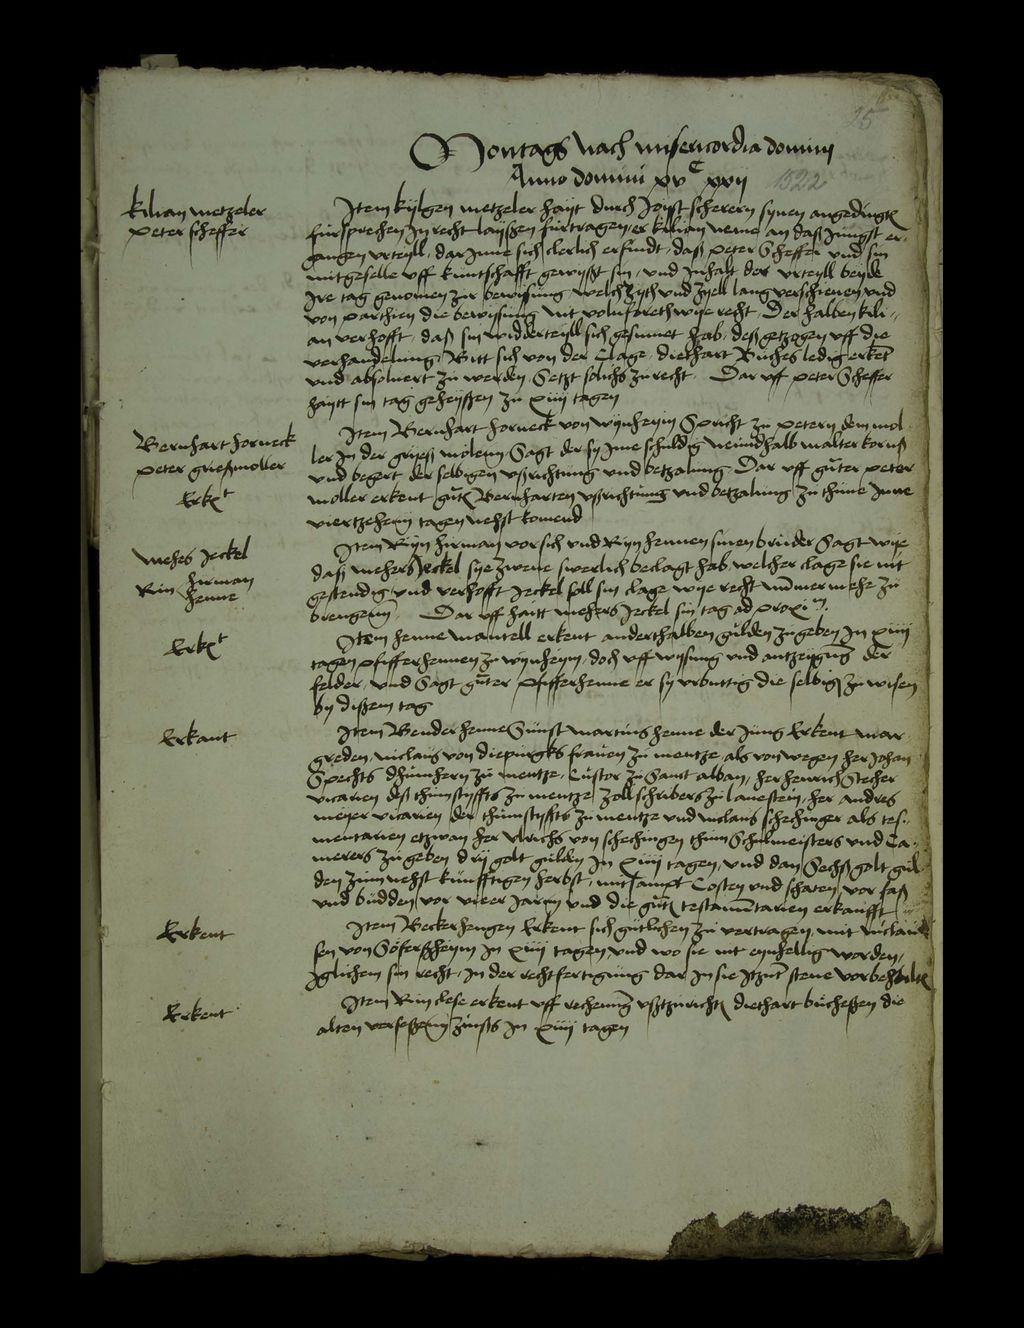 25
Montags nach misericordia domini
Anno domini xvc xxij 1522
Kilian metzeler
peter scheffer
Item kylgen metzeler hayt durch Joyst scherern synen angedingten
fursprechen In recht layssen furtragen er kilian neme an das Jungst er-
gangen urteyll, dar Inne sich clerlich erfindt, das peter Scheffer und sin
mitgeselle uff kuntschafft gewysst sin, und Inhalt der urteyll beyde
Ire tag genomen zu bewysung welch zyth und zyell lang verschienen und
von parthien die bewysung nit volnfureth wye recht Der halben kili-
an verhofft, das sin widderteyll sich gesumet hab, des getzogen uff die
verhandelung Bitt sich von der Clage, diethart Buches ledig erkent
und absolvert zu werden, Setzt solichs zu recht. Dar uff peter Scheffer
haytt sin tag geheyssen zu xiiij tagen
Bernhart forneck
peter griessmoller
Erkt
Item Bernhart forneck von wynheym Spricht zu petern dem mol
ler In der gryess molenn Sagt der sy Ime schuldig neundhalb malter korns
und begert der selbigen ussrichtung und betzalung Dar uff guter peter
moller erkent guten Bernharten ussrichtung und betzalung zu thune Inne
viertzehenn tagen nehst komend
mehes Jeckel
Rin hirman
henne
Item Ryn hirman vor sich und Ryn hennen sinen bruder Sagt wye
das mehers Jeckel sye zwene swerlich beclagt hab, welcher clage sie nit
gestendig und verhofft Jeckel soll sin clage wye recht nummermehe zu
brengenn Dar uff haitt mehers Jeckel sin tag ad proxim
Erkt
Item henne mantell erkent anderthalben gulden zugeben In xiiij
tagen pfifferhennen zu wynheym, doch uff wysung und antzeigung der
felder, und Sagt guter pfifferhenne er sy urbuttig die selbigen zu wisen
by dissem tag
Erkant
Item Bender henne Sunst martins henne der Jung Erkent mar
greden, niclais von diepurgks frauen zu mentze als von wegen her Johan
Spechts dhumhern zu mentze, Custor zu Sanct alban, her henrich Stecher
vicarien des thumstyffts zu mentze zollschribers zu lanestein, her andres
meyer vicarien der thumstyffts zu mentze und niclais schechinger als tes-
mentarien etzwan her Ulrichs von schechingen thum Schulmeisters und Ca-
merers zu geben drij golt gulden In xiiij tagen, und dan Sechss golt gul
den zum nehst kunfftigen herbst, mit sampt Costen und schaten, vor fass
und budden, vor vieer Jarnn umb die guten testamentarien erkaufft
Erkent
Item Becker hengen Erkent sich gutlichen zu vertragen, mit niclais
sen von Soferssheym In xiiij tagen und wo sie nit eynhellig worden,
Iglichem sin recht, In der rechtfertigung dar In sie Itzunt stene vorbehalten
Erkent
Item Rin clese erkent uff rechenung usstzurichten diethart bucheszen die
alten versessenn zinss In xiiij tagen